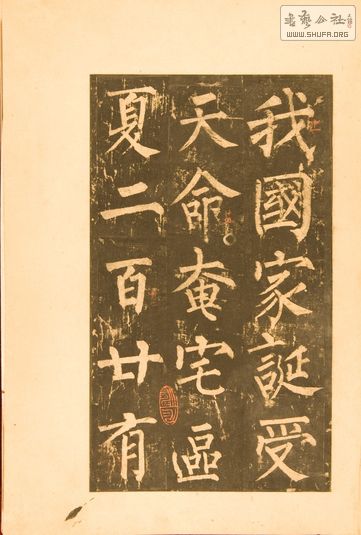 我國家誕受
天命奄宅區
夏二百廿有
書藝公社
WWW.SHUFA.ORG